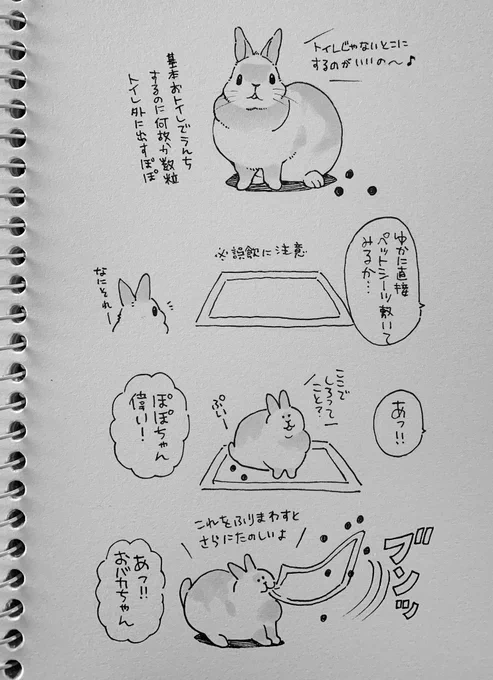 トイレじゃないとこに
するのがいいの〜♪
基本おトイレでうんち
するのに何故か数粒
トイレ外に出すぽぽ
ゆかに直接
ペットシーツ敷いて
みるか…
※誤飲に注意
なにそれー
あっ!!
ここで
しろって
こと?
ぷいー
ぽぽちゃん
偉い!
これをふりまわすと
さらにたのしいよ
ブンッ
あっ!!
おバカちゃん